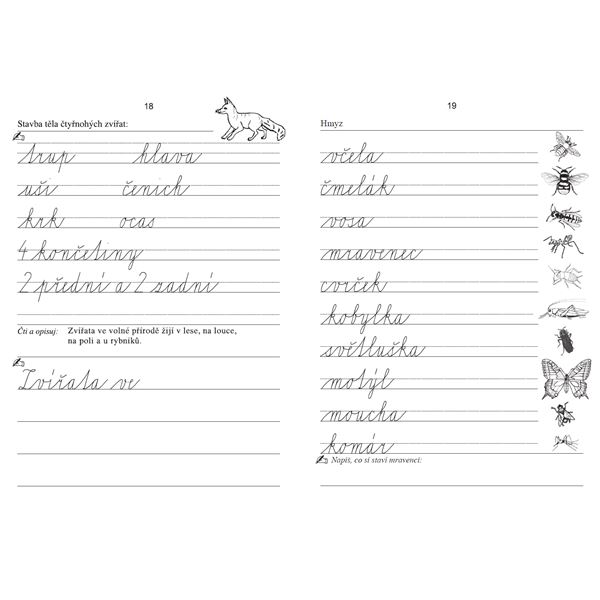 18
Stavba těla čtyřnohých zvířat:
trup hlava
uši čenich
krk ocas
4 končetiny
2 přední a 2 zadní
Čti a opisuj: Zvířata ve volné přírodě žijí v lese, na louce,
na poli a u rybníků.
Zvířata ve
19
Hmyz
včela
čmelák
vosa
mravenec
cvrček
kobylka
světluška
motýl
moucha
komár
Napiš, co si staví mravenci: